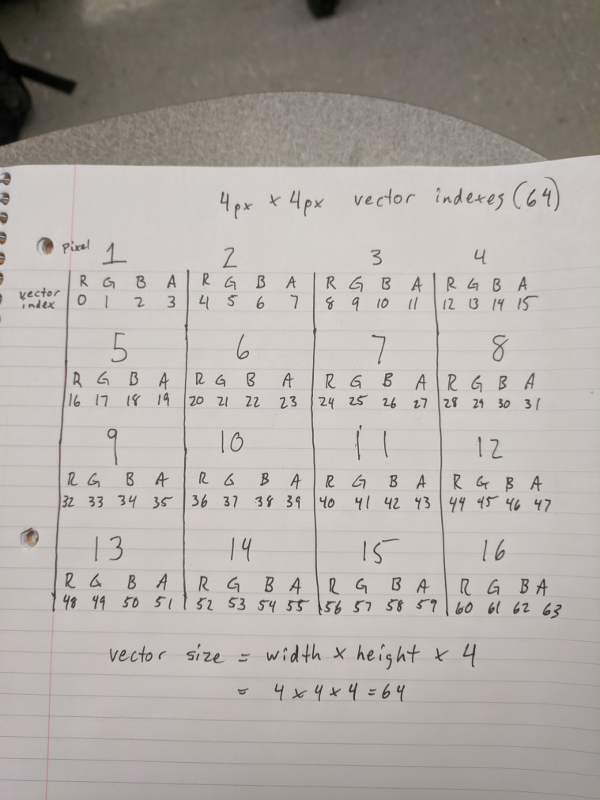 4px x 4px vector indexes (64)
pixel 1 2 3 4
R G B A R G B A R G B A R G B A
vector index 0 1 2 3 4 5 6 7 8 9 10 11 12 13 14 15
5 6 7 8
R G B A R G B A R G B A R G B A
16 17 18 19 20 21 22 23 24 25 26 27 28 29 30 31
9 10 11 12
R G B A R G B A R G B A R G B A
32 33 34 35 36 37 38 39 40 41 42 43 44 45 46 47
13 14 15 16
R G B A R G B A R G B A R G B A
48 49 50 51 52 53 54 55 56 57 58 59 60 61 62 63
vector size = width x height x 4
= 4 x 4 x 4 = 64